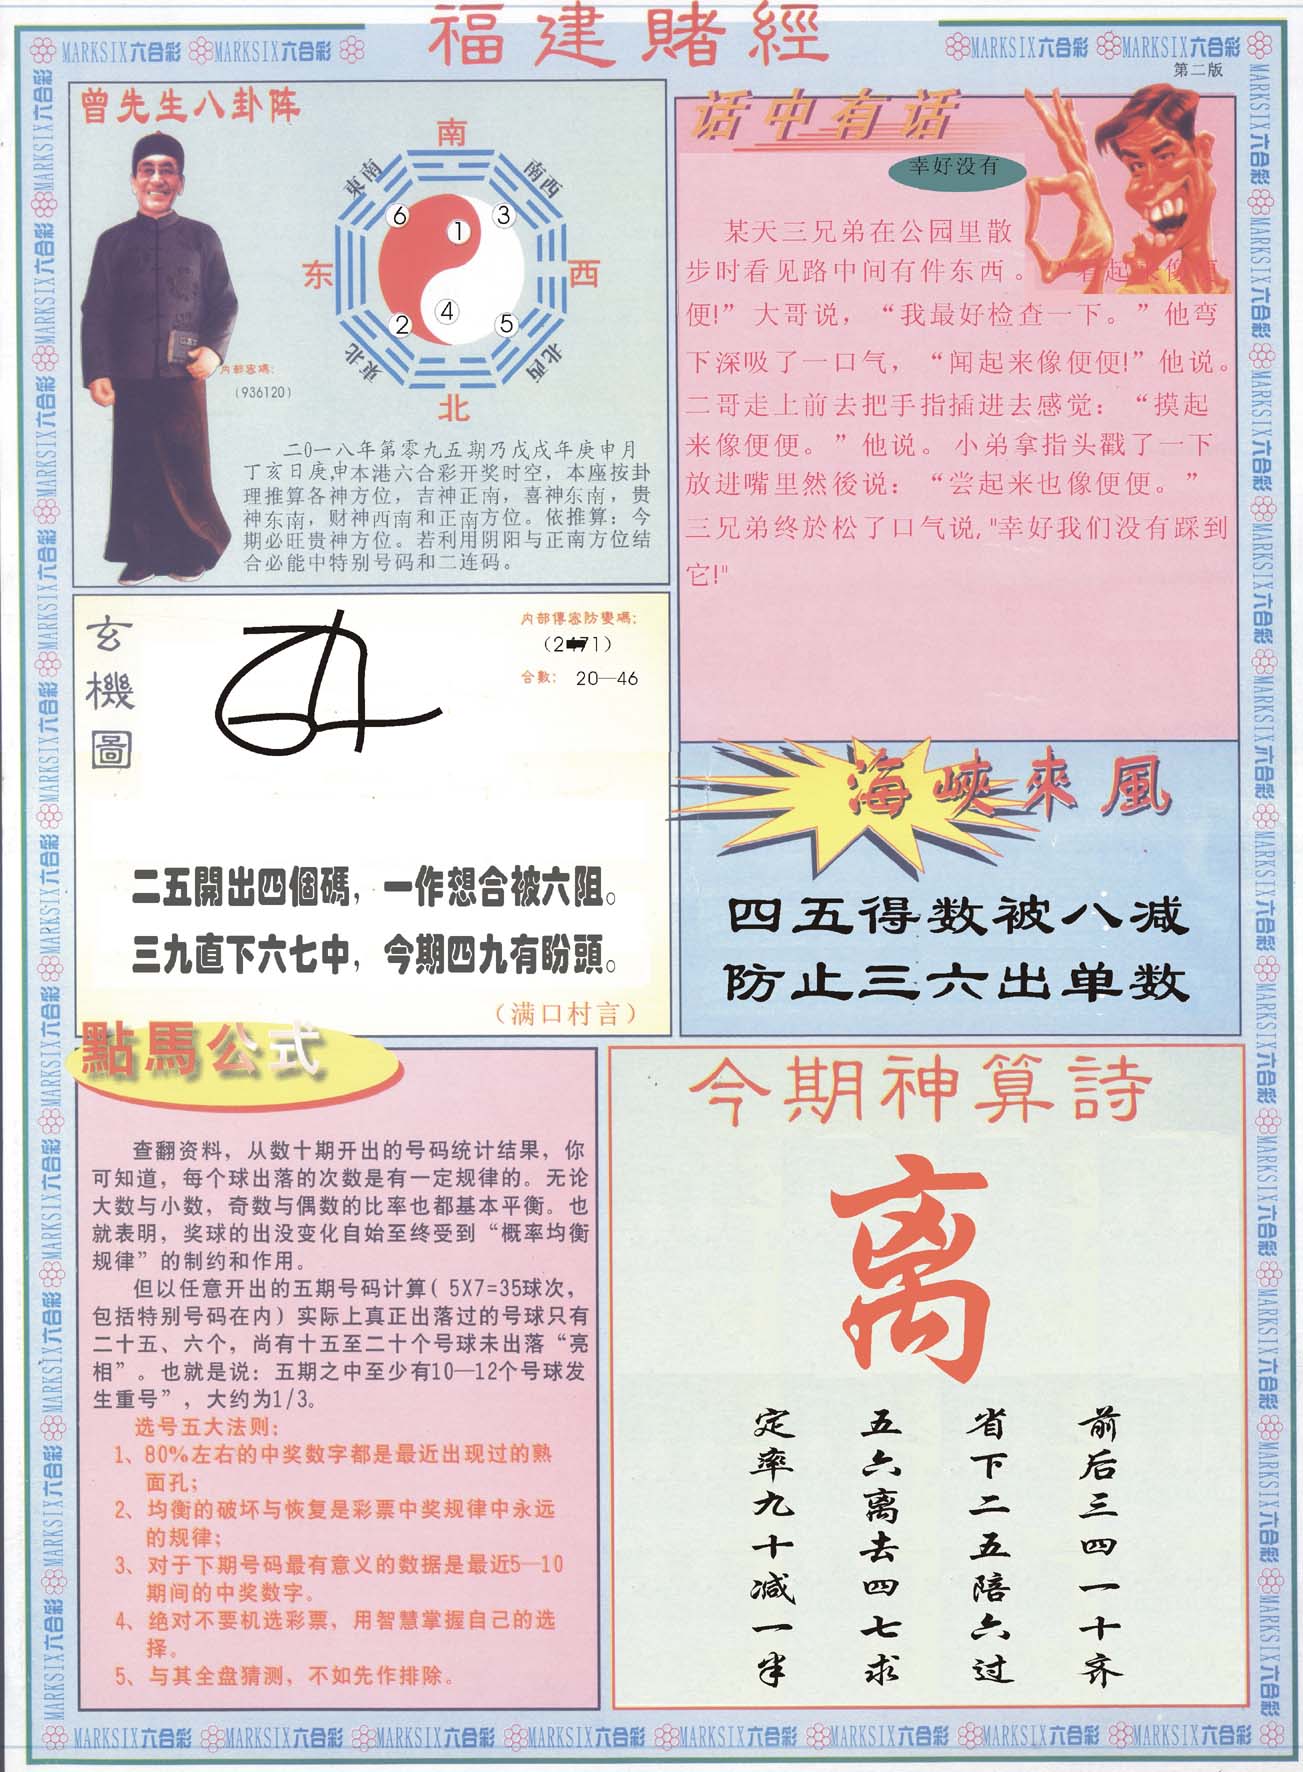 福建賭經
MARKSIX六合彩 MARKSIX六合彩
MARKSIX六合彩 MARKSIX六合彩
第二版
曾先生八卦阵
南
東南
南西
6
1
3
东
西
2
4
5
東北
北西
北
内部密碼：
（936120）
二0一八年第零九五期乃戊戌年庚申月
丁亥日庚,申本港六合彩开奖时空，本座按卦
理推算各神方位，吉神正南，喜神东南，贵
神东南，财神西南和正南方位。依推算：今
期必旺贵神方位。若利用阴阳与正南方位结
合必能中特别号码和二连码。
话中有话
幸好没有
某天三兄弟在公园里散
步时看见路中间有件东西。“看起来像便
便!”大哥说，“我最好检查一下。”他弯
下深吸了一口气，“闻起来像便便!”他说。
二哥走上前去把手指插进去感觉：“摸起
来像便便。”他说。小弟拿指头戳了一下
放进嘴里然後说：“尝起来也像便便。”
三兄弟终於松了口气说,"幸好我们没有踩到
它!"
玄機圖
内部傳密防變碼：
（2 71）
合數： 20—46
二五開出四個碼，一作想合被六阻。
三九直下六七中，今期四九有盼頭。
（满口村言）
海峽來風
四五得数被八减
防止三六出单数
點馬公式
查翻资料，从数十期开出的号码统计结果，你
可知道，每个球出落的次数是有一定规律的。无论
大数与小数，奇数与偶数的比率也都基本平衡。也
就表明，奖球的出没变化自始至终受到“概率均衡
规律”的制约和作用。
但以任意开出的五期号码计算( 5X7=35球次，
包括特别号码在内）实际上真正出落过的号球只有
二十五、六个，尚有十五至二十个号球未出落“亮
相”。也就是说：五期之中至少有10—12个号球发
生重号”，大约为1/3。
选号五大法则：
1、80%左右的中奖数字都是最近出现过的熟
面孔；
2、均衡的破坏与恢复是彩票中奖规律中永远
的规律；
3、对于下期号码最有意义的数据是最近5—10
期间的中奖数字。
4、绝对不要机选彩票，用智慧掌握自己的选
择。
5、与其全盘猜测，不如先作排除。
今期神算詩
离
前后三四一十齐
省下二五陪六过
五六离去四七求
定率九十减一半
MARKSIX六合彩 MARKSIX六合彩 MARKSIX六合彩 MARKSIX六合彩 MARKSIX六合彩 MARKSIX六合彩 MARKSIX六合彩 MARKSIX六合彩